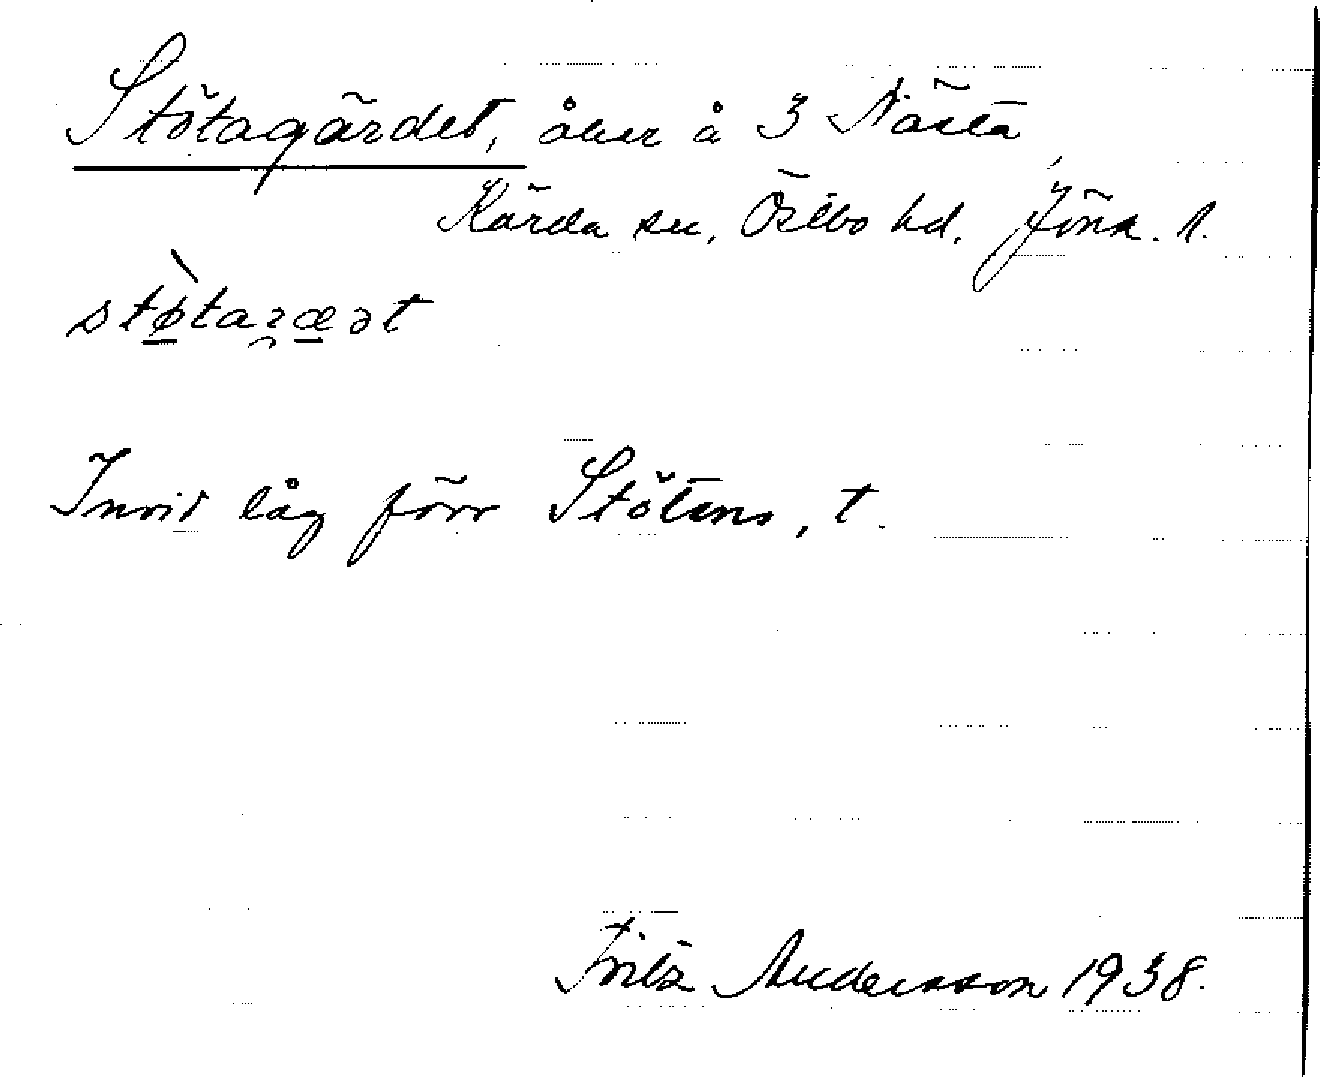 Stötagärdet, åker å 3 Nästa
Kärda sn, Östbo hd. Jönk. l.
Invid låg förr Stötens, t.
Fritz Andersson 1938.